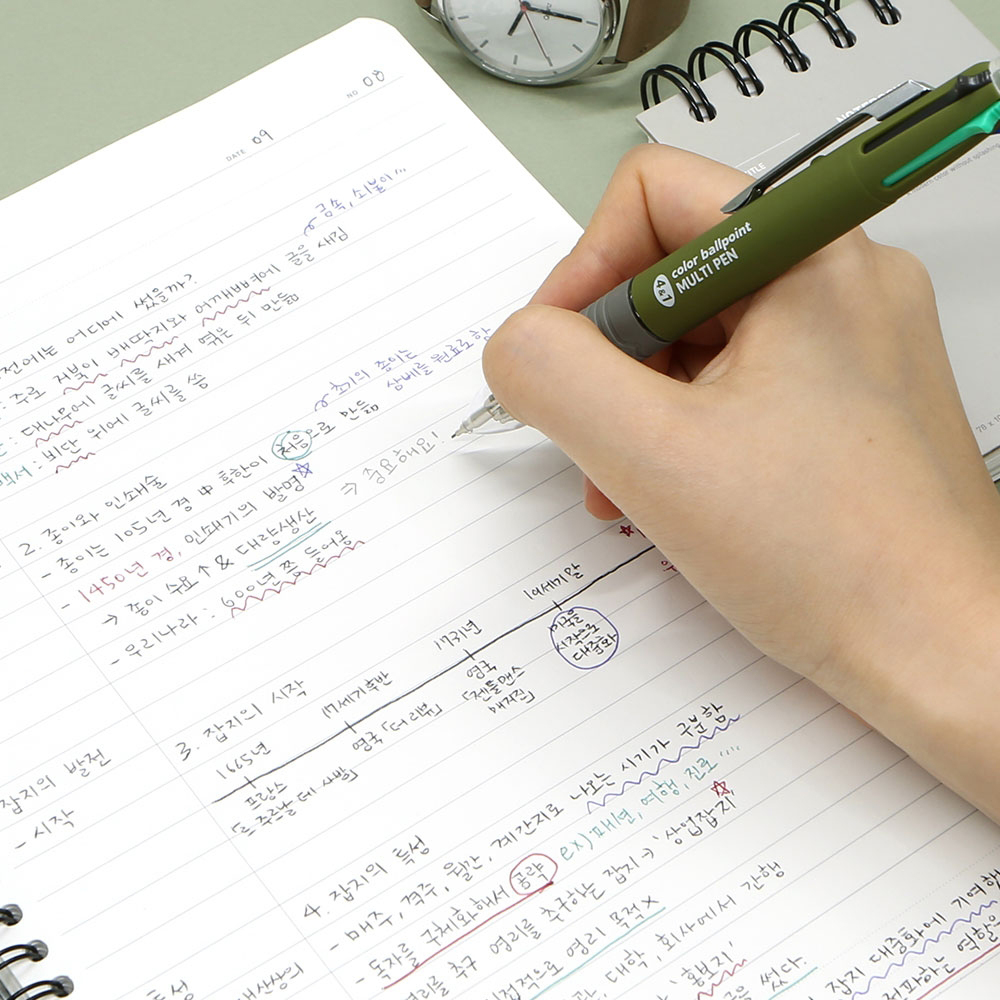 NO 08
DATE 09
금속, 쇠붙이...
전에는 어디에 썼을까?
: 주로 거북이 배딱지와 어깨뼈에 글을 새김
: 대나무에 글씨를 새겨 엮은 뒤 만듦
백서 : 비단 위에 글씨를 씀
초기의 종이는
삼베를 원료로함
2. 종이와 인쇄술
- 종이는 105년 경 中 후한이 처음으로 만듦
- 1450년 경, 인쇄기의 발명
⇒ 중요해요!
→ 종이 수요↑ & 대량생산
- 우리나라 : 600년 쯤 들어옴
3. 잡지의 시작
1665년
프랑스
「르 주르날 데 사방」
17세기후반
영국 「더 리뷰」
1731년
영국
「젠틀맨스
매거진」
19세기 말
미국을
시작으로
대중화
잡지의 발전
- 시작
4. 잡지의 특성
- 매주, 격주, 월간, 계간지로 나오는 시기가 구분함
- 독자를 구체화해서 공략 ex) 패션, 여행, 진로 ....
영리를 추구 영리를 추구하는 잡지 → '상업잡지'
접적으로 영리 목적 x
관, 대학, 회사에서 간행
'홍보지'
을 썼다.
특성
잡지 대중화에 기여
전파하는 역할을
4&1 color ballpoint
MULTI PEN